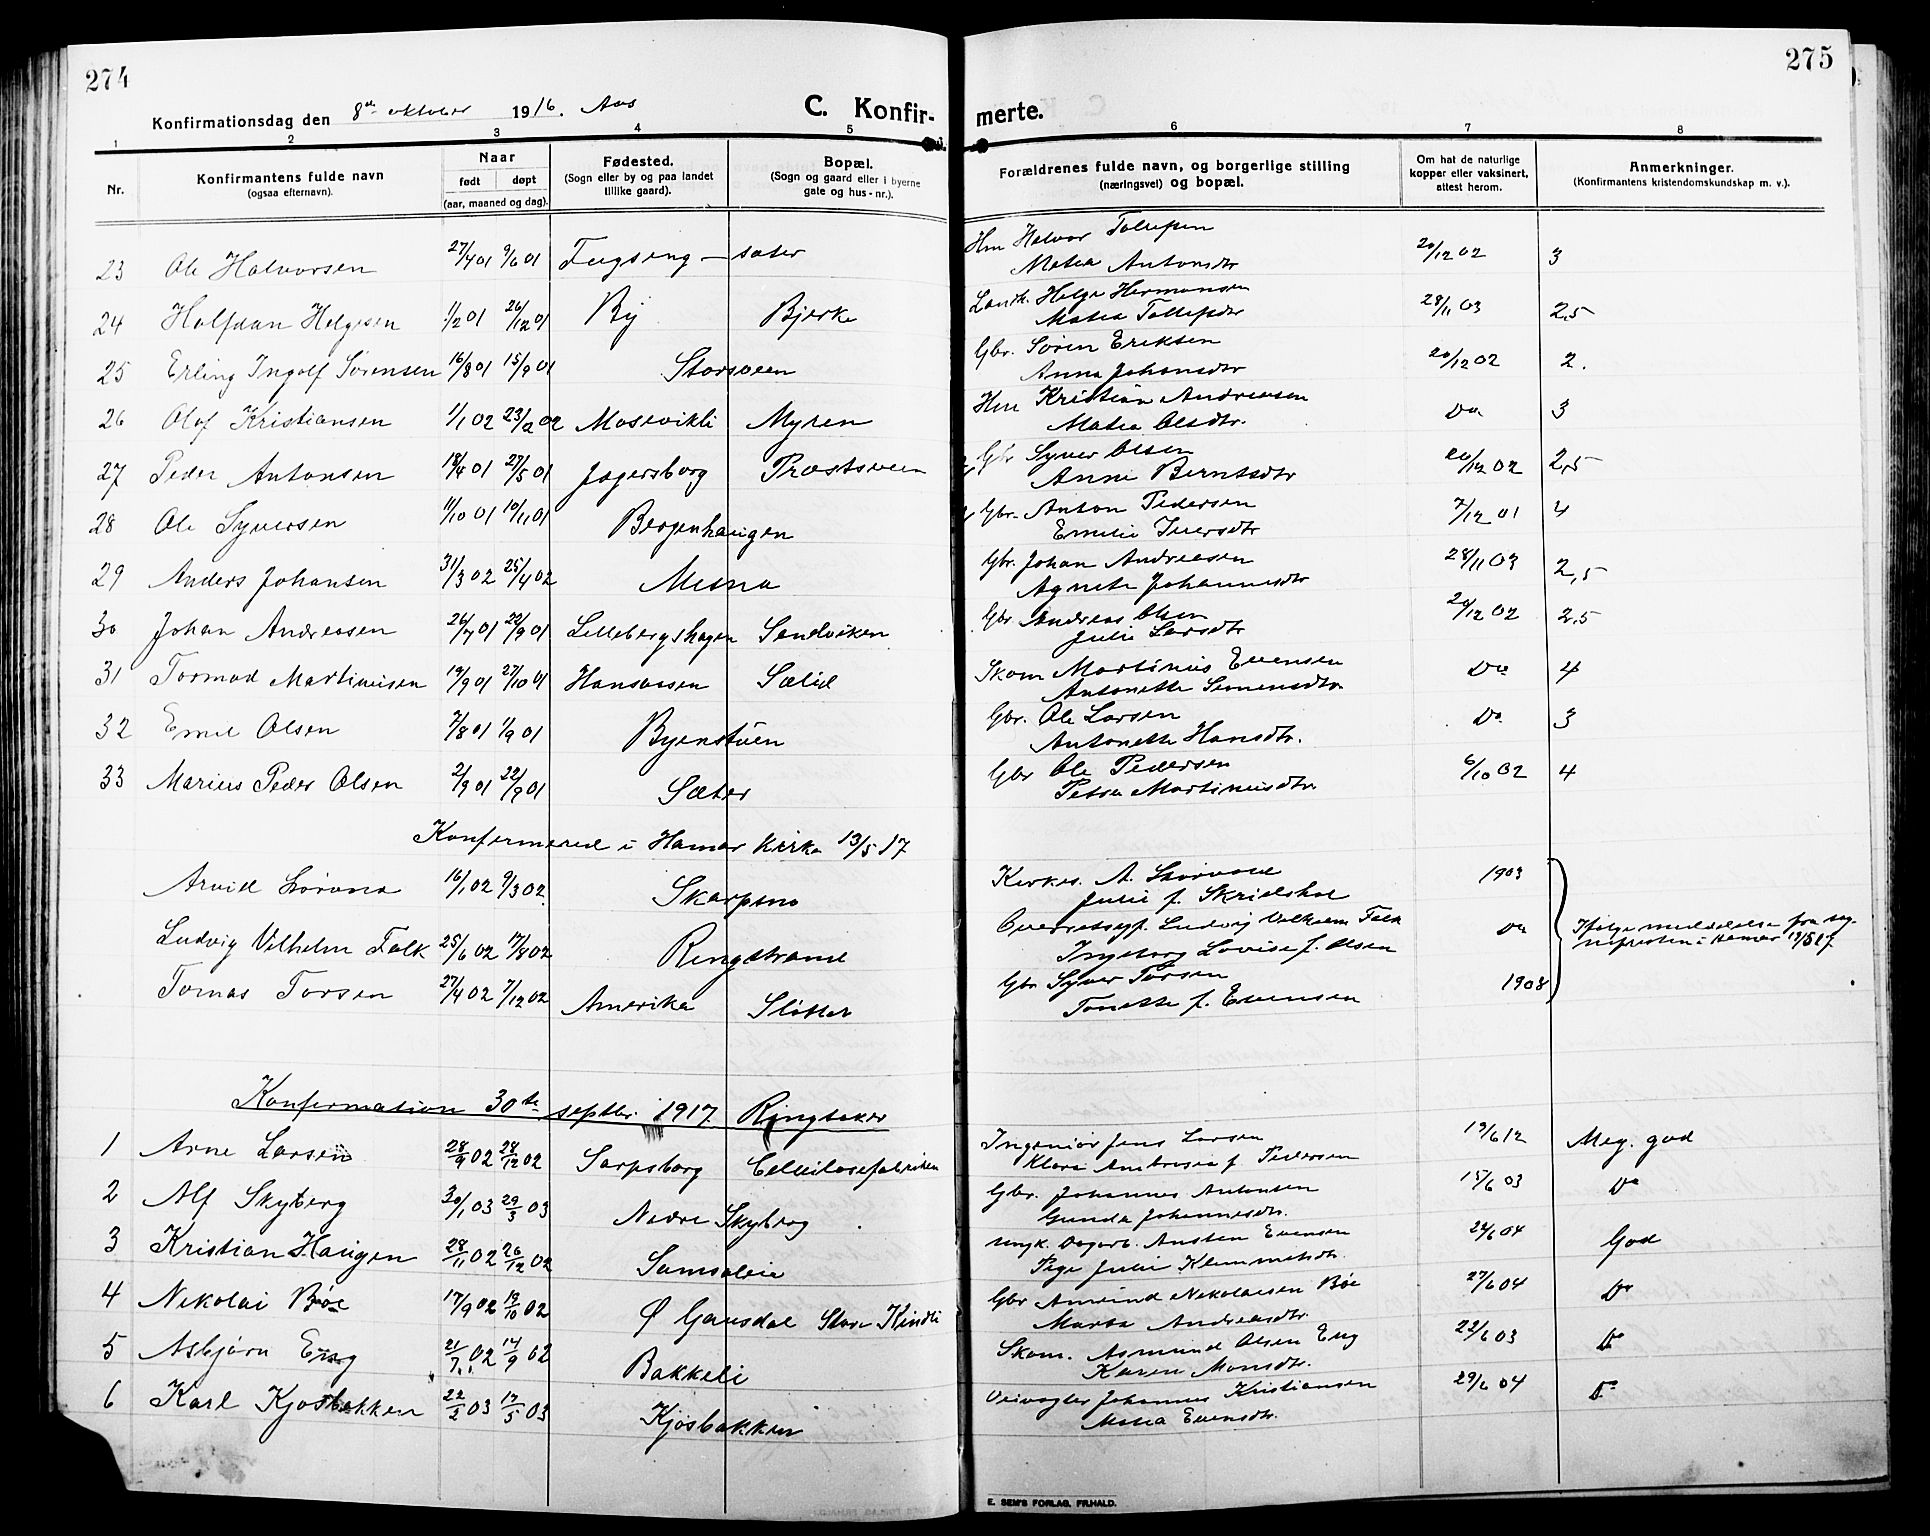 274
275
Konfirmationsdag den 8de oktober 1916. Aas
C. Konfir-
merte.
1 2 3 4 5 6 7 8
Nr.
Konfirmantens fulde navn
(ogsaa efternavn).
Naar
født døpt
(aar, maaned og dag).
Fødested.
(Sogn eller by og paa landet
tillike gaard).
Bopæl.
(Sogn og gaard eller i byerne
gate og hus-nr.).
Forældrenes fulde navn, og borgerlige stilling
(næringsvei) og bopæl.
Om hat de naturlige
kopper eller vaksinert,
attest herom.
Anmerkninger.
(Konfirmantens kristendomskundskap m. v.).
23 Ole Halvorsen 27/4 01 9/6 01 Fugseng - sæter Hm Halvor Tollefsen 20/12 02 3
Matea Antonsdtr
24 Halfdan Helgesen 1/2 01 26/12 01 By Bjerke Landh. Helge Hermansen 28/11 03 2,5
Matea Tollefsdtr
25 Erling Ingolf Sørensen 16/8 01 15/9 01 Storsveen Gbr. Søren Eriksen 20/12 02 2.
Anna Johansdtr
26 Olaf Kristiansen 1/1 02 23/2 02 Mosevikli Myren Hm Kristian Andreasen Do 3
Matea Olsdtr.
27 Peder Antonsen 18/4 01 27/5 01 Jagersborg Præstsveen Gbr Syver Olsen 20/12 02 2,5
Anne Berntsdtr
28 Ole Syversen 11/10 01 10/11 01 Bergenhaugen Gbr. Anton Pedersen 7/12 01 4
Emelie Iversdtr
29 Anders Johansen 31/3 02 25/4 02 Mesna Gbr. Johan Andreasen 28/11 03 2,5
Agnete Johannesdtr
30 Johan Andreasen 26/7 01 22/9 01 Lillebergshagen Sandviken Gbr Andreas Olsen 20/12 02 2,5
Julie Larsdtr
31 Tormod Martinusen 19/9 01 27/10 01 Hansaasen Sælid Skom Martinus Evensen Do 4
Antonette Simensdtr.
32 Emil Olsen 7/8 01 1/9 01 Byenstuen Gbr. Ole Larsen Do 3
Antonette Hansdtr.
33 Marius Peder Olsen 2/9 01 22/9 01 Sæter Gbr Ole Pedersen 6/10 02 4
Petra Martinusdtr
Konfirmered i Hamar Kirke 13/5 17
Arvid 16/1 02 9/3 02 Skarpsno Kirkes. A. 1903
Julie f.
Ludvig Vilhelm Falk 25/6 02 17/8 02 Ringstrand Ludvig Vilhelm Falk Do
Ingeborg Lovise f. Olsen
Ifølge meddelelse fra
i Hamar
Tomas Torsen 27/4 02 7/12 02 Amerika Slotter Gbr Syver Torsen 1908
Tonette f. Evensen
Konfirmation 30te septbr. 1917. Ringsaker
1 Arne Larsen 28/9 02 28/12 02 Sarpsborg Cellulosefabriken Ingeniør Jens Larsen 19/6 12 Meg. god
Klara f. Pedersen
2 Alf Skyberg 30/1 03 29/3 03 Nedre Skyberg Gbr. Johannes Antonsen 15/6 03 Do
Gunda Johannesdtr.
3 Kristian Haugen 28/11 02 26/12 02 Samsaleie Ungk. Dagarb. Austen Evensen 24/6 04 God
Pige Julie Klemmetsdtr.
4 Nikolai Bøe 17/9 02 19/10 02 Ø Gausdal Store Kindli Gbr Amund Nikolaisen Bøe 27/6 04 Do
Marta Andreasdtr.
5 Asbjørn Eng 21/7 02 14/9 02 Bakkeli Skom. Asmund Olsen Eng 22/6 03 Do
Karen Monsdtr.
6 Karl Kjosbakken 22/2 03 17/5 03 Kjosbakken Veivogter Johannes Kristiansen 29/6 04 Do
Matea Evensdtr.
E. SEM'S FORLAG. FR.HALD.